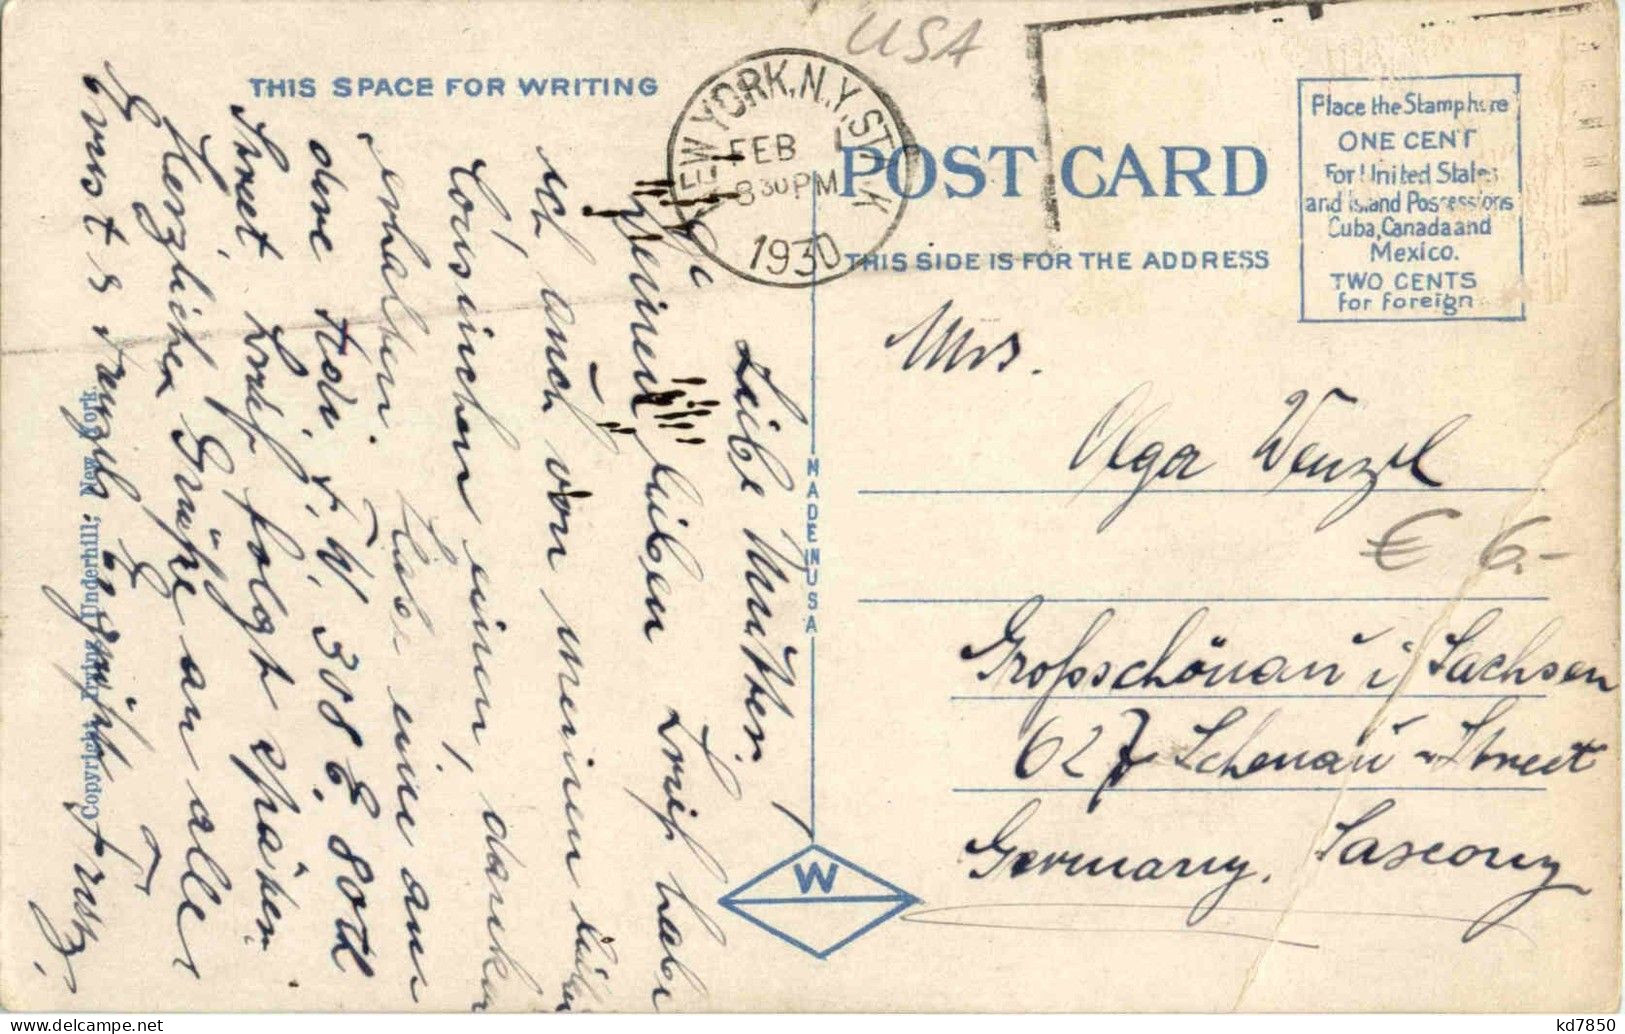 USA
THIS SPACE FOR WRITING
NEW YORK, N.Y. STA. K
FEB
830PM
1930
POST CARD
THIS SIDE IS FOR THE ADDRESS
Place the Stamp here
ONE CENT
For United States
and Island Possessions
Cuba, Canada and
Mexico.
TWO CENTS
for foreign
Liebe Mutter!
Deinen lieben Brief habe
ich auch von meinem lieben
Cousinchen einen, danken
erhalten. Habe eine an
dere
308 E 80th
Street, Brief folgt später.
Herzliche Grüße an alle
Ernst &
Fritz.
Mrs.
Olga Wenzel
€ 6.-
Grossschönau i Sachsen
627 Schenau-Street
Germany. Saxcony
MADE IN USA
W
Copyright Irving Underhill, New York
kd7850